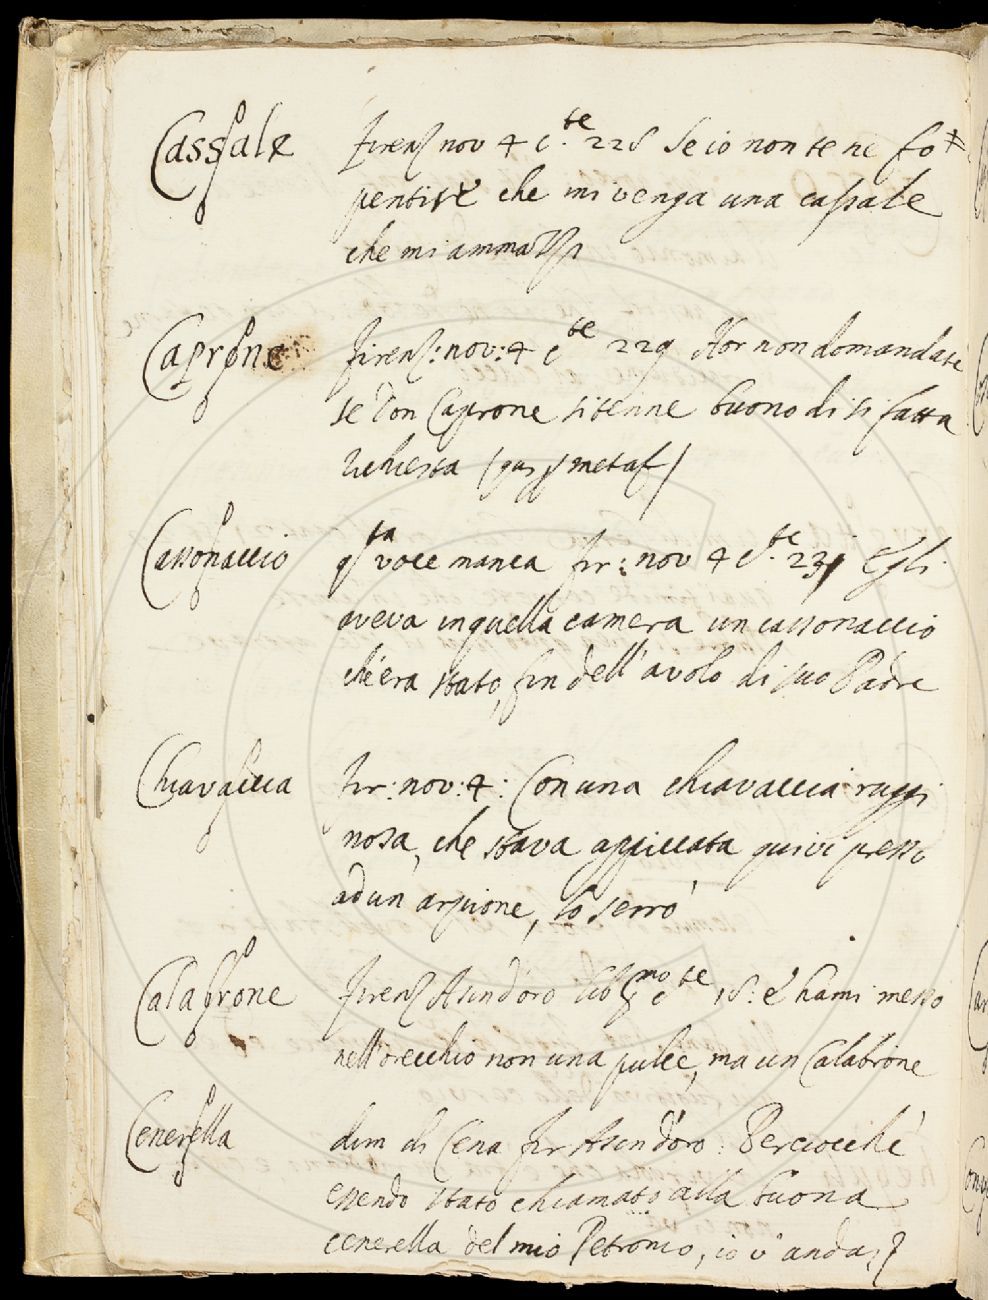 Cassale Firenz nov 4 c.te 228 Se io non te ne fo
pentire che mi venga una cassale
che mi ammazzi
Caprone Firenz: nov: 4 c te 229 Hor non domandate
se Don Caprone si tenne buono di si fatta
richiesta (qui p metaf)
Cassonaccio q.sta voce manca fir: nov 4 c.te 231 Egli
aveva in quella camera un cassonaccio
ch'era stato, fin dell'avolo di suo Padre
Chiavaccia fir: nov: 4: Con una chiavaccia ruggi
nosa, che stava appiccata quivi presso
ad un arpione, lo serrò
Calabrone Firenz Asin d'oro lib p.mo c te 18: e hami messo
nell'orecchio non una pulce, ma un Calabrone
Cenerella dim di Cena fir Asin d'oro: Perciocchè
essendo stato chiamato alla buona
cenerella del mio Petronio, io v'andai